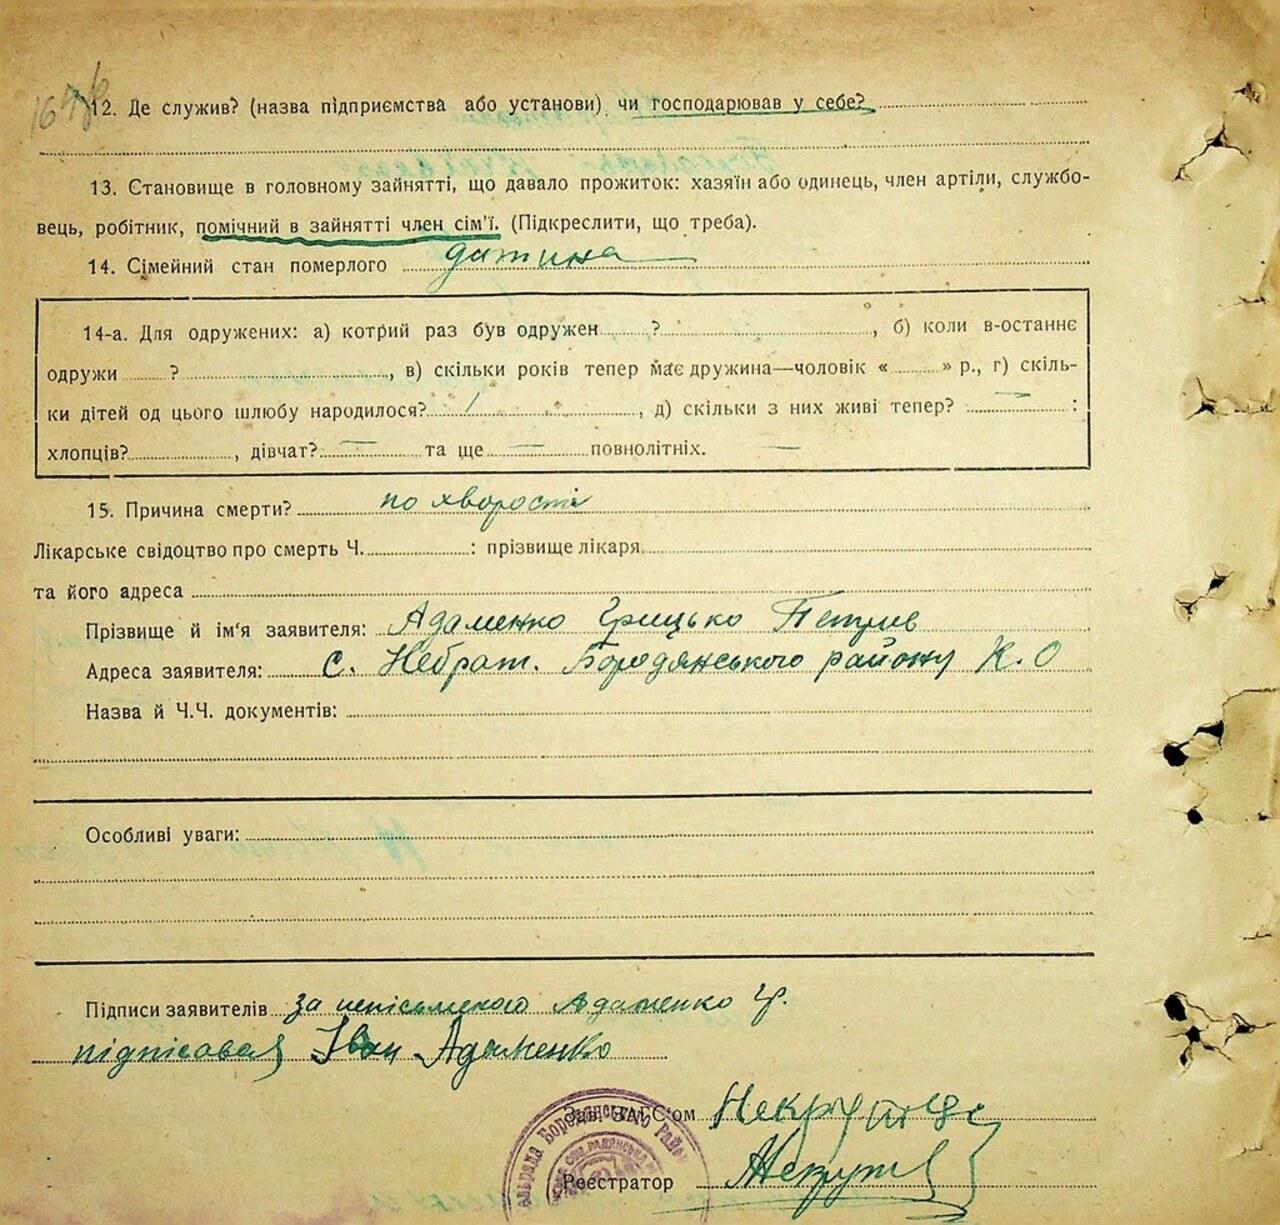 12. Де служив? (назва підприємства або установи) чи господарював у себе?
13. Становище в головному зайнятті, що давало прожиток: хазяїн або одинець, член артіли, службо-
вець, робітник, помічний в зайнятті член сім'ї. (Підкреслити, що треба).
14. Сімейний стан померлого дитина
14-а. Для одружених: а) котрий раз був одружен ? , б) коли в-останнє
одружи ? , в) скільки років тепер має дружина—чоловік « » р., г) скіль-
ки дітей од цього шлюбу народилося? , д) скільки з них живі тепер? — :
хлопців? , дівчат? — та ще — повнолітніх. —
15. Причина смерти? по хворости
Лікарське свідоцтво про смерть Ч. : прізвище лікаря
та його адреса
Прізвище й ім'я заявителя: Адаменко Грицько Петрив
Адреса заявителя: с. Небрат. Бородянського району К. О
Назва й Ч.Ч. документів:
Особливі уваги:
Підписи заявителів за неписьменого Адаменко Гр.
підпісовав Іван Адаменко
Зав. ЗАГС'ом
Реєстратор